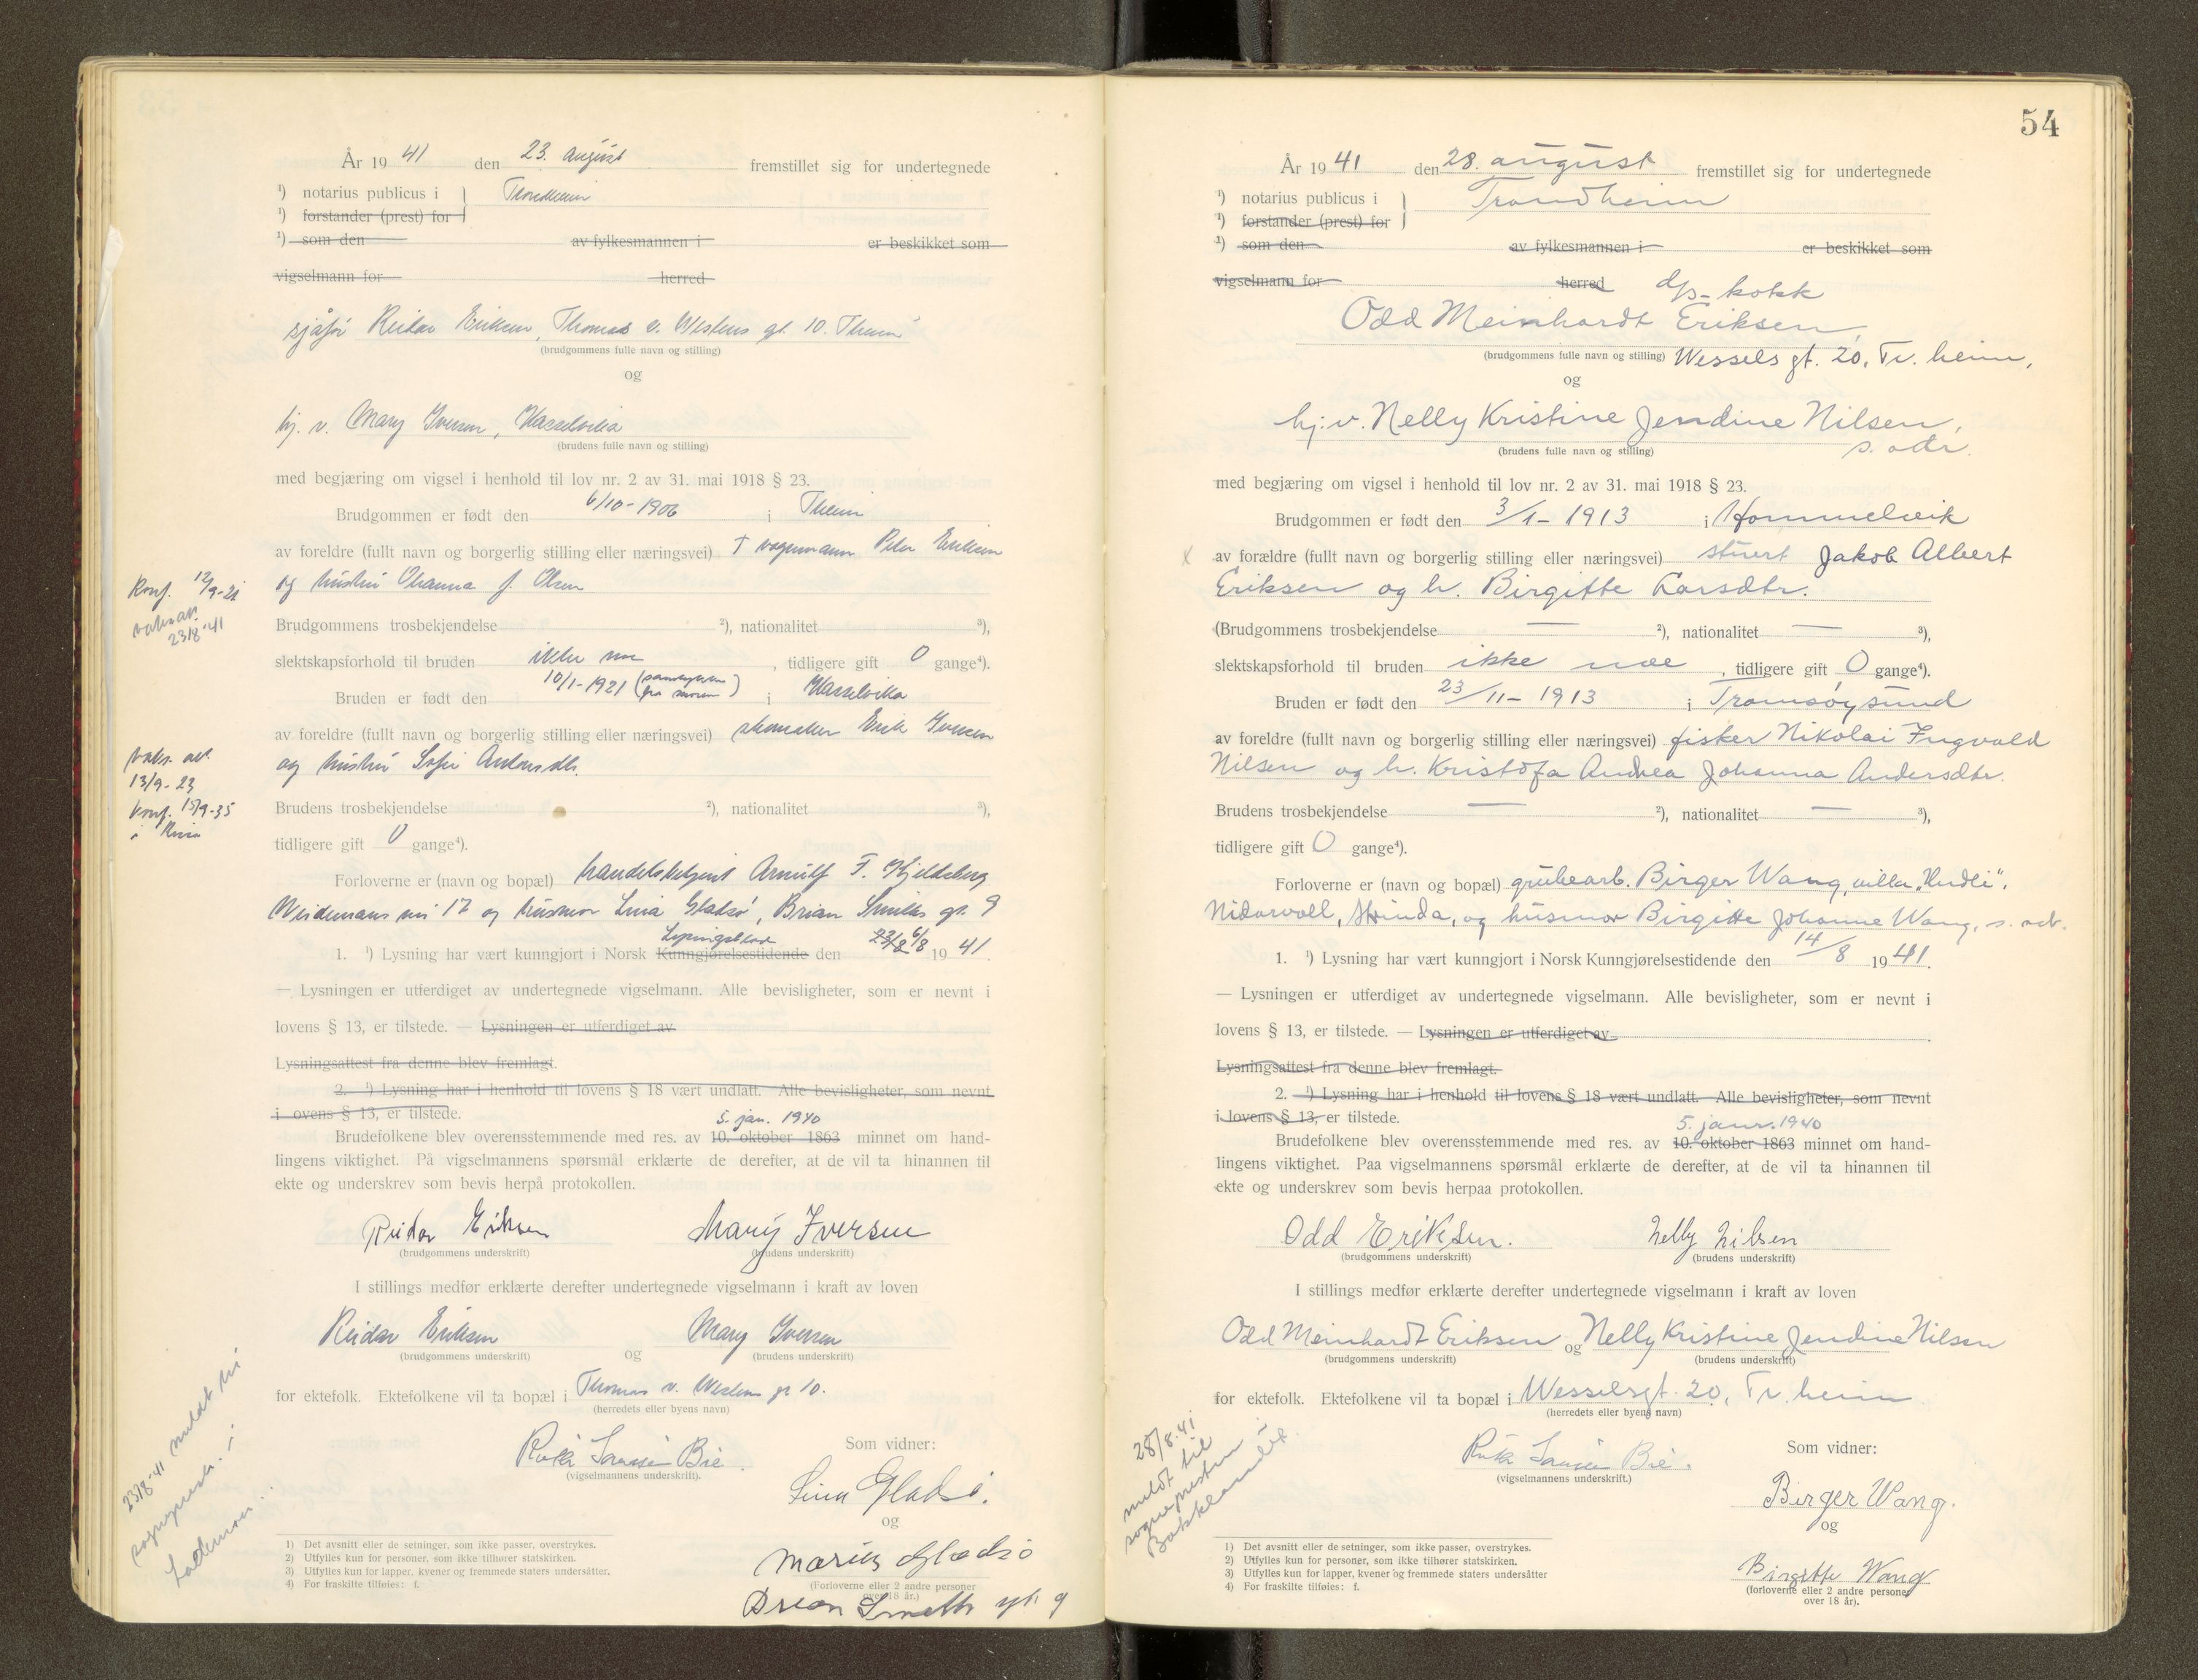 År 19 41 den 23. august fremstillet sig for undertegnede
¹) notarius publicus i Trondheim
¹) forstander (prest) for
¹) som den av fylkesmannen i er beskikket som
vigselmann for herred
sjåfør Reidar Eriksen, Thomas v. Westens gt. 10. Theim
(brudgommens fulle navn og stilling)
og
hj. v. Mary Iversen, Hasselvika
(brudens fulle navn og stilling)
med begjæring om vigsel i henhold til lov nr. 2 av 31. mai 1918 § 23.
Brudgommen er født den 6/10-1906 i Theim
av foreldre (fullt navn og borgerlig stilling eller næringsvei) † vognmann Peder Eriksen
og hustru Ohanna f. Olsen
Konf. 12/9-21
vaks. att.
23/8-41
Brudgommens trosbekjendelse ²), nationalitet ³),
slektskapsforhold til bruden ikke noe, tidligere gift 0 gange⁴).
Bruden er født den 10/1-1921 (samtykke fra moren) i Hasselvika
av foreldre (fullt navn og borgerlig stilling eller næringsvei) skomaker Erik Iversen
og hustru Sofie Antonsdtr.
vaks. att.
13/9-23
konf. 15/9-35
i Rissa
Brudens trosbekjendelse ²), nationalitet ³),
tidligere gift 0 gange⁴).
Forloverne er (navn og bopæl) handelsbetjent Arnulf F. Hjeldsberg
Weidemans vei 17 og husmor Lina Gladsø, Brian Smiths gt. 9
1. ¹) Lysning har vært kunngjort i Norsk Kunngjørelsestidende Lysningsblad den 23/8 6/8 19 41.
— Lysningen er utferdiget av undertegnede vigselmann. Alle bevisligheter, som er nevnt i
lovens § 13, er tilstede. — Lysningen er utferdiget av
Lysningsattest fra denne blev fremlagt.
2. ¹) Lysning har i henhold til lovens § 18 vært undlatt. Alle bevisligheter, som nevnt
i lovens § 13, er tilstede.
5. jan. 1940
Brudefolkene blev overensstemmende med res. av 10. oktober 1863 minnet om hand-
lingens viktighet. På vigselmannens spørsmål erklærte de derefter, at de vil ta hinannen til
ekte og underskrev som bevis herpå protokollen.
Reidar Eriksen Mary Iversen
(brudgommens underskrift) (brudens underskrift)
I stillings medfør erklærte derefter undertegnede vigselmann i kraft av loven
Reidar Eriksen og Mary Iversen
(brudgommens underskrift) (brudens underskrift)
for ektefolk. Ektefolkene vil ta bopæl i Thomas v. Westens gt 10.
(herredets eller byens navn)
23/8-41 meldt til
sognepresten i
Lademoen
Som vidner:
(vigselmannens underskrift).
Lina Gladsø.
og
Marius Gladsø
(Forloverne eller 2 andre personer
over 18 år.)
Brian Smith gt. 9
1) Det avsnitt eller de setninger, som ikke passer, overstrykes.
2) Utfylles kun for personer, som ikke tilhører statskirken.
3) Utfylles kun for lapper, kvener og fremmede staters undersåtter.
4) For fraskilte tilføies: f.
54
År 19 41 den 28. august fremstillet sig for undertegnede
¹) notarius publicus i Trondheim
¹) forstander (prest) for
¹) som den av fylkesmannen i er beskikket som
vigselmann for herred
d/s-kokk
Odd Meinhardt Eriksen,
(brudgommens fulle navn og stilling) Wessels gt. 20, Tr. heim,
og
hj.v. Nelly Kristine Jendine Nilsen,
(brudens fulle navn og stilling) s. adr.
med begjæring om vigsel i henhold til lov nr. 2 av 31. mai 1918 § 23.
Brudgommen er født den 3/1-1913 i Hommelvik
x av forældre (fullt navn og borgerlig stilling eller næringsvei) stuert Jakob Albert
Eriksen og h. Birgitte Larsdtr.
(Brudgommens trosbekjendelse — ²), nationalitet — ³),
slektskapsforhold til bruden ikke noe, tidligere gift 0 gange⁴).
Bruden er født den 23/11-1913 i Tromsøysund
av foreldre (fullt navn og borgerlig stilling eller næringsvei) fisker Nikolai Ingvald
Nilsen og h. Kristofa Andrea Johanna Andersdtr.
Brudens trosbekjendelse — ²), nationalitet — ³),
tidligere gift 0 gange⁴).
Forloverne er (navn og bopæl) grubearb. Birger Wang, villa "Hudli",
Nidarvoll, Strinda, og husmor Birgitte Johanne Wang, s. adr.
1. ¹) Lysning har vært kunngjort i Norsk Kunngjørelsestidende den 14/8 1941.
— Lysningen er utferdiget av undertegnede vigselmann. Alle bevisligheter, som er nevnt i
lovens § 13, er tilstede. — Lysningen er utferdiget av
Lysningsattest fra denne blev fremlagt.
2. ¹) Lysning har i henhold til lovens § 18 vært undlatt. Alle bevisligheter, som nevnt
i lovens § 13, er tilstede.
5. janr. 1940
Brudefolkene blev overensstemmende med res. av 10. oktober 1863 minnet om hand-
lingens viktighet. Paa vigselmannens spørsmål erklærte de derefter, at de vil ta hinannen til
ekte og underskrev som bevis herpaa protokollen.
Odd Eriksen. Nelly Nilsen
(brudgommens underskrift) (brudens underskrift)
I stillings medfør erklærte derefter undertegnede vigselmann i kraft av loven
Odd Meinhardt Eriksen og Nelly Kristine Jendine Nilsen
(brudgommens underskrift) (brudens underskrift)
for ektefolk. Ektefolkene vil ta bopæl i Wesselsgt. 20, Tr. heim
(herredets eller byens navn)
28/8.41
meldt til
sognepresten i
Bakklandet
Som vidner:
(vigselmannens underskrift.)
Birger Wang.
og
Birgitte Wang
(forloverne eller 2 andre personer
over 18 år).
1) Det avsnitt eller de setninger, som ikke passer, overstrykes.
2) Utfylles kun for personer, som ikke tilhører statskirken.
3) Utfylles kun for lapper, kvener og fremmede staters undersåtter
4) For fraskilte tilføies: f.